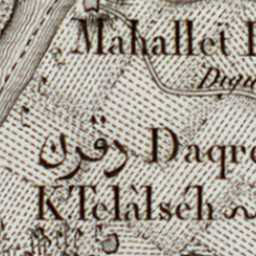 Mahallet
Digu
دقرن Daqre
K Telâlséh